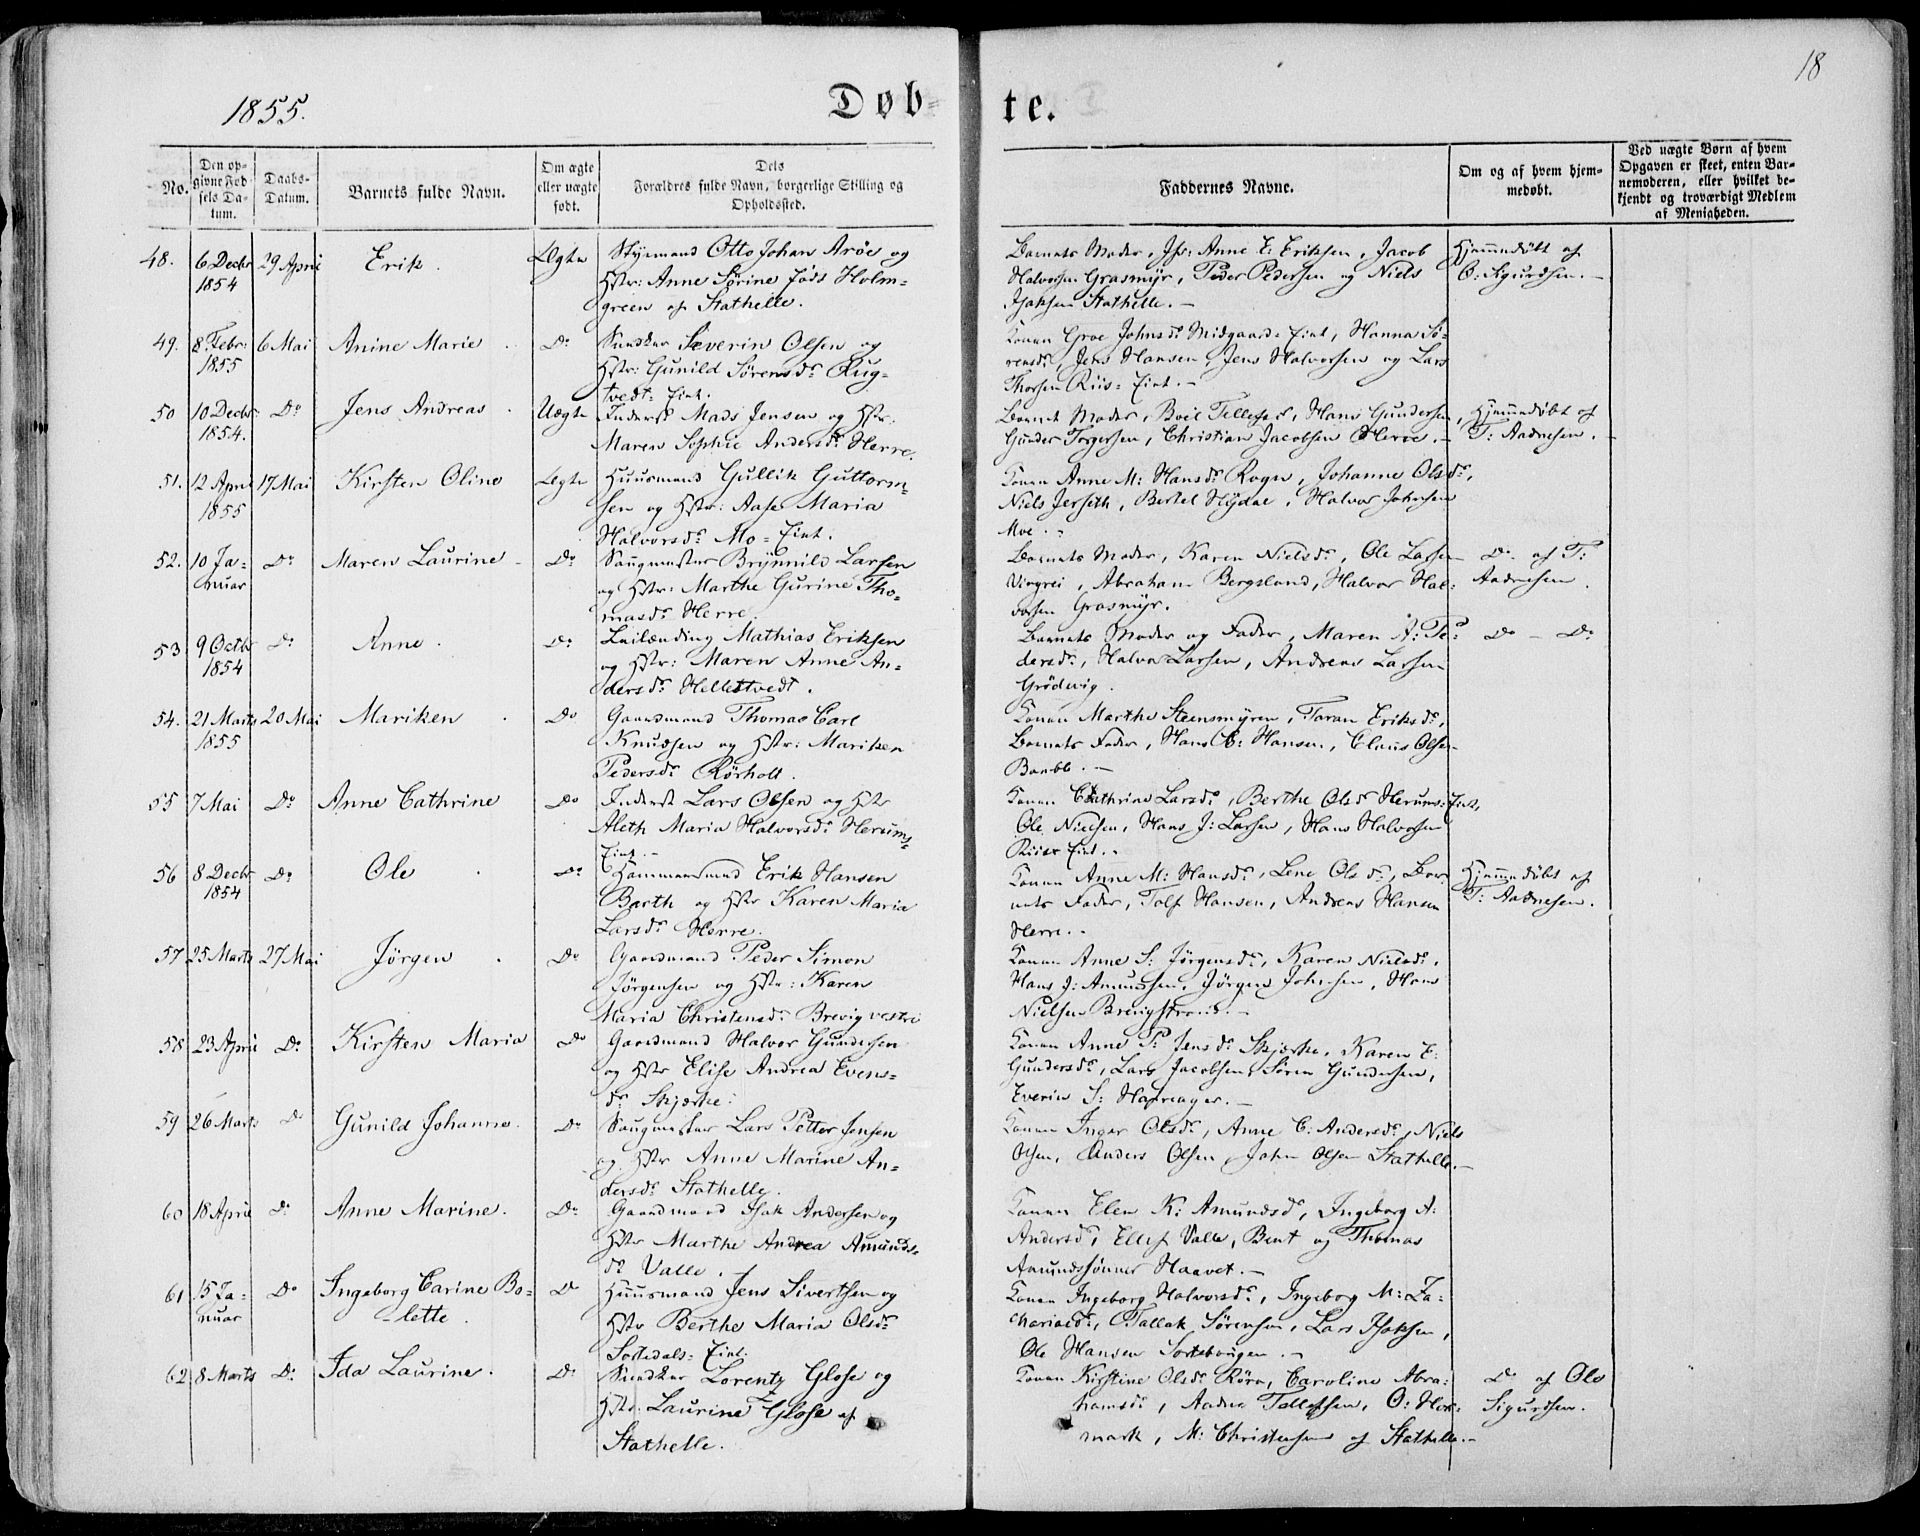 18
1855.
Døb-
te.
No.
Den op-
givne Fød
sels Da-
tum.
Daabs-
Datum.
Barnets fulde Navn.
Om ægte
eller uægte
født.
Dets
Forældres fulde Navn, borgerlige Stilling og
Opholdssted.
Faddernes Navne.
Om og af hvem hjem-
medøbt.
Ved uægte Børn af hvem
Opgaven er skeet, enten Bar-
nemoderen, eller hvilket be-
kjendt og troværdigt Medlem
af Menigheden.
48. 6 Decbr 29 April Erik. Ægte Styrmand Otto Johan Arøe og
1854 Hstr: Anne Sørine føds Holm-
green af Stathelle.
Barnets Moder, Jfr: Anne E: Eriksen, Jacob
Halvorsen Grasmyr, Peder Pedersen og Niels
Isaksen Stathelle. -
Hjemmedøbt af
O: Sigurdsen. -
49. 8 Febr: 6 Mai Anine Marie Do Snedker Severin Olsen og
1855 Hstr: Gunild Sørensdr Rug-
tvedt-Eiet.
Konen Groe Johnsdr Midgaards Eiet, Hanna Sø-
rensdr, Jens Hansen, Jens Halvorsen og Lars
Thorsen Riis-Eiet. -
50 10 Decbr: Do Jens Andreas. Uægte Inderst Mads Jensen og Hstr:
1854. Maren Sophie Andersdr Herre.
Barnets Moder, Boil Tellefsdr, Hans Gundersen,
Gunder Torgersen, Christian Jacobsen Herre. -
Hjemmedøbt af
T: Aadnesen. -
51. 12 April 17 Mai Kirsten Oline Ægte Huusmand Gullik Guttorm-
1855 sen og Hstr: Aase Maria
Halvorsdr Mo-Eiet.
Konen Anne M: Hansdr Rogn, Johanne Olsdr,
Niels Jerseth, Bertel Hydal, Halvor Johnsen
Moe. -
52. 10 Ja- Do Maren Laurine - Do Saugmester Brynnild Larsen
nuar og Hstr: Marthe Gurine Tho-
masdr Herre.
Barnets Moder, Karen Nielsdr, Ole Larsen
Vingrei, Abraham Bergsland, Halvor Hal-
vorsen Grasmyr.
Do af T:
Aadnesen.
53 9 Octbr Do Anne. Do Leilænding Mathias Eriksen
1854 og Hstr: Maren Anne An-
dersdr Hellestvedt.
Barnets Moder og Fader, Maren A: Pe-
dersdr, Halvor Larsen, Andreas Larsen
Grødevig.
Do - Do
54. 21 Marts 20 Mai Mariken Do Gaardmand Thomas Carl
1855 Knudsen og Hstr: Mariken
Pedersdr Rørholt.
Konen Marthe Steensmyren, Taran Eriksdr,
Barnets Fader, Hans C: Hansen, Claus Olsen
Bamble. -
55 7 Mai Do Anne Cathrine Do Inderst Lars Olsen og Hstr
Aleth Maria Halvorsdr Herums-
Eiet. -
Konen Cathrine Larsdr, Berthe Olsdr Herums-Eiet,
Ole Nielsen, Hans J: Larsen, Hans Halvorsen
Riis-Eiet. -
56 8 Decbr Do Ole Do Hammersmed Erik Hansen
1854 Barth og Hstr Karen Maria
Larsdr Herre.
Konen Anne M: Hansdr, Lene Olsdr, Bar-
nets Fader, Tolf Hansen, Andreas Hansen
Herre. -
Hjemmedøbt af
T: Aadnesen.
57 25 Marts 27 Mai Jørgen Do Gaardmand Peder Simon
Jørgensen og Hstr: Karen
Maria Christensdr Brevig vestre
Konen Anne S: Jørgensdr, Karen Nielsdr,
Hans J: Amundsen, Jørgen Johnsen, Hans
Nielsen Brevigstrand. -
58 23 April Do Kirsten Maria Do Gaardmand Halvor Gundersen
og Hstr Elise Andrea Evens-
dr Skjerke.
Konen Anne P: Jensdr Skjerke, Karen E:
Gundersdr, Lars Jacobsen, Søren Gundersen,
Everin S: Hafsager. -
59 26 Marts Do Gunild Johanne. Do Saugmester Lars Petter Jensen
og Hstr Anne Marine An-
dersdr Stathelle.
Konen Inger Olsdr, Anne C: Andersdr, Niels
Olsen, Anders Olsen, John Olsen Stathelle. -
60 18 April Do Anne Marine. Do Gaardmand Isak Andersen og
Hstr Marthe Andrea Amunds-
dr Valle.
Konen Elen K: Amundsdr, Ingeborg A:
Andersdr, Ellef Valle, Bent og Thomas
Amundssønner Haavet. -
61 15 Ja- Do Ingeborg Carine Bo- Do Huusmand Jens Sivertsen og
nuar -lette. Hstr Berthe Maria Olsdr
Sortedals-Eiet.
Konen Ingeborg Halvorsdr, Ingeborg M: Za-
chariasdr, Tallak Sørensen, Lars Isaksen,
Ole Hansen Sortebougen. -
62 8 Marts Do Ida Laurine. Do Snedker Lorentz Glose og
Hstr: Laurine F Glose af
Stathelle.
Konen Kirstine Olsdr Røra, Caroline Abra-
hamsdr, Aadne Tellefsen, O: Hok-
mark, M: Christensen af Stathelle. -
Do af Ole
Sigurdsen.